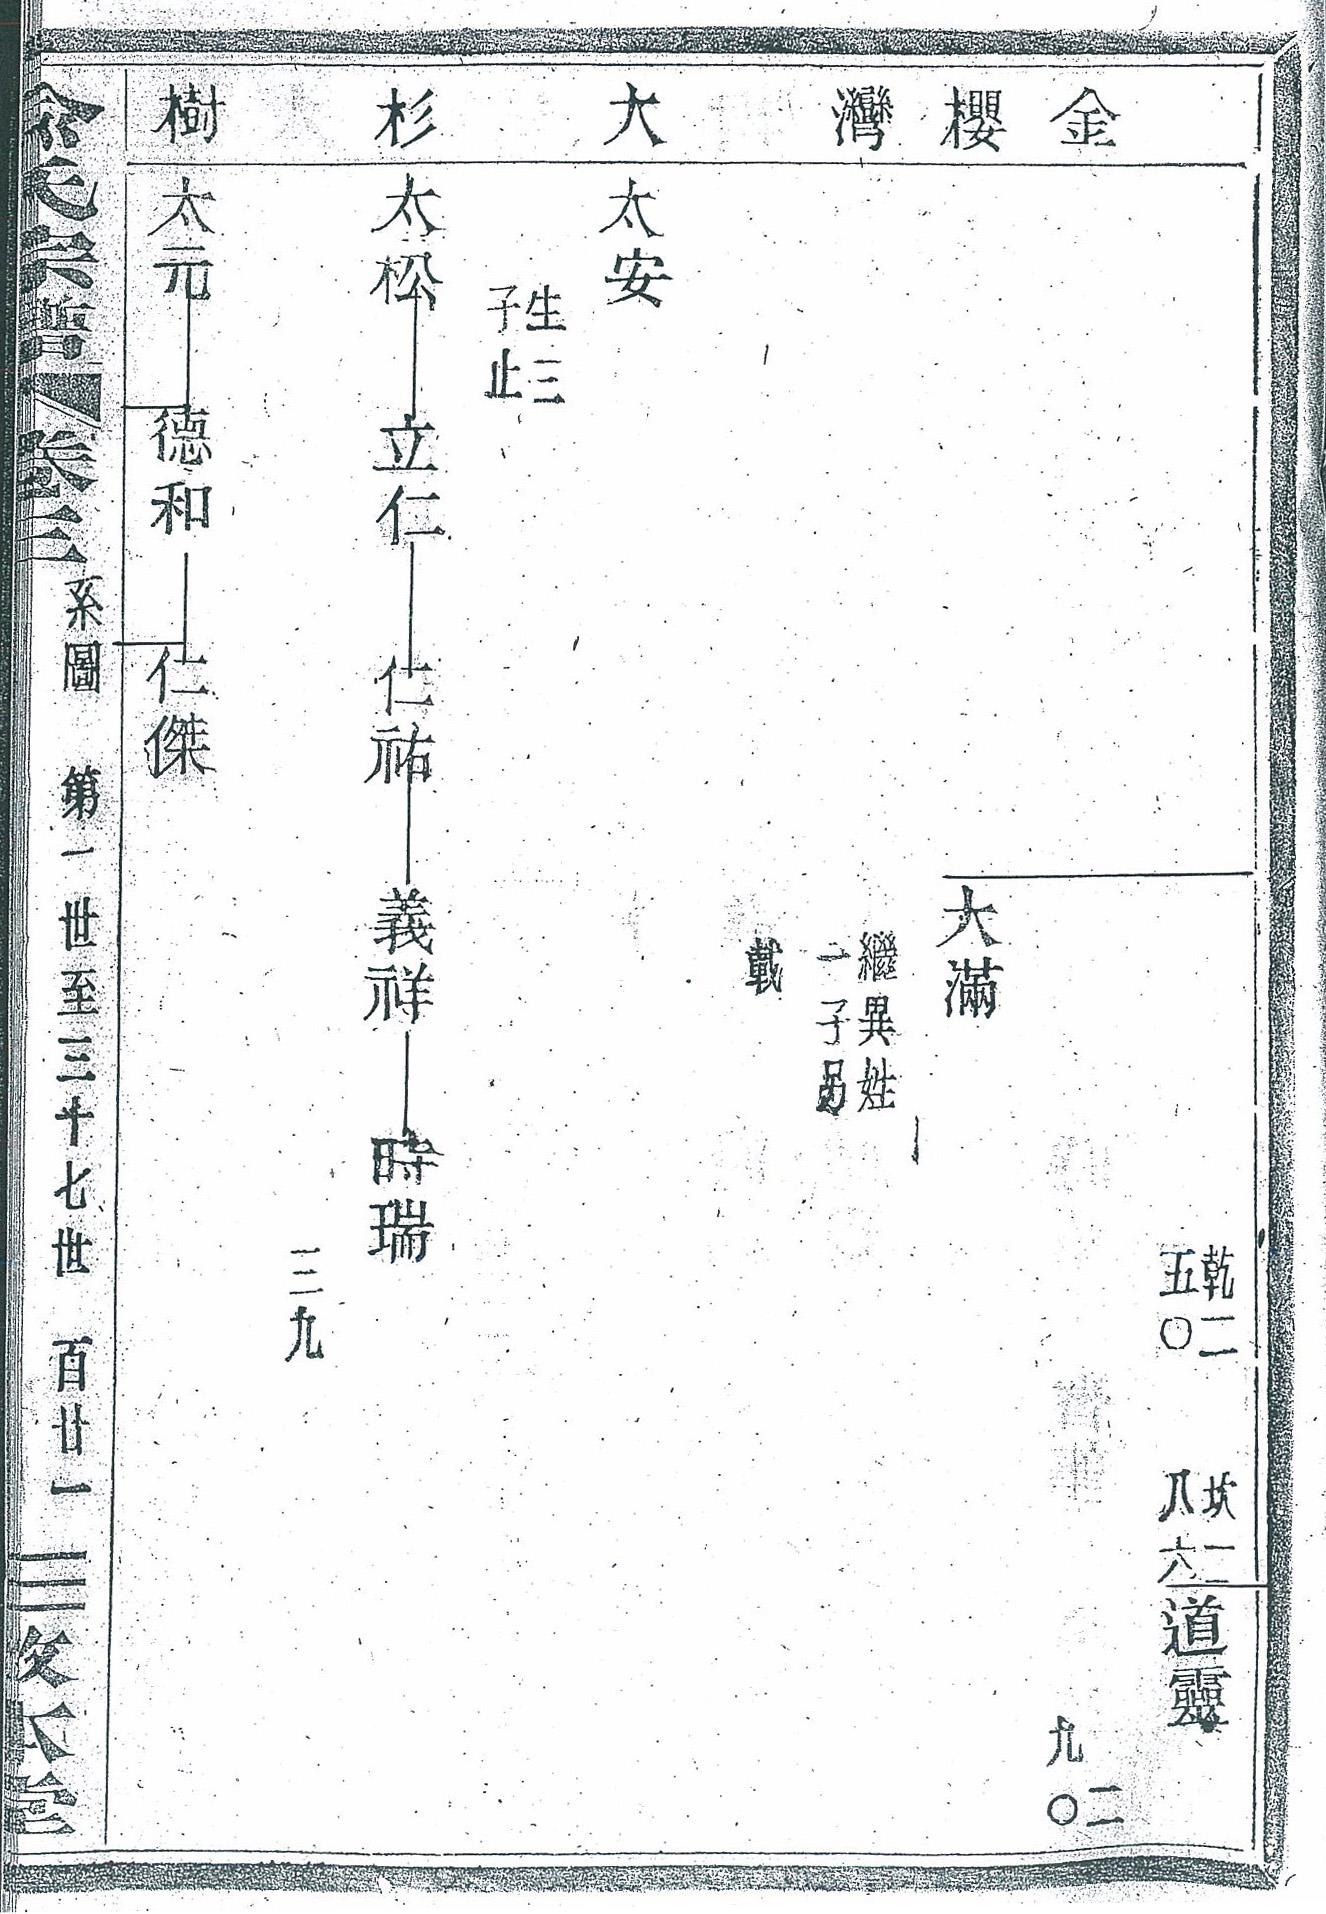 金
櫻
灣
大
杉
樹
乾二
五〇
坎二
八六
道靈
二
九〇
大滿
繼異姓
一子另
載
太安
生三
子止
太松
立仁
仁祐
義祥
時瑞
三九
太元
德和
仁傑
余氏宗譜
卷三
系圖 第一世至三十七世 百廿一